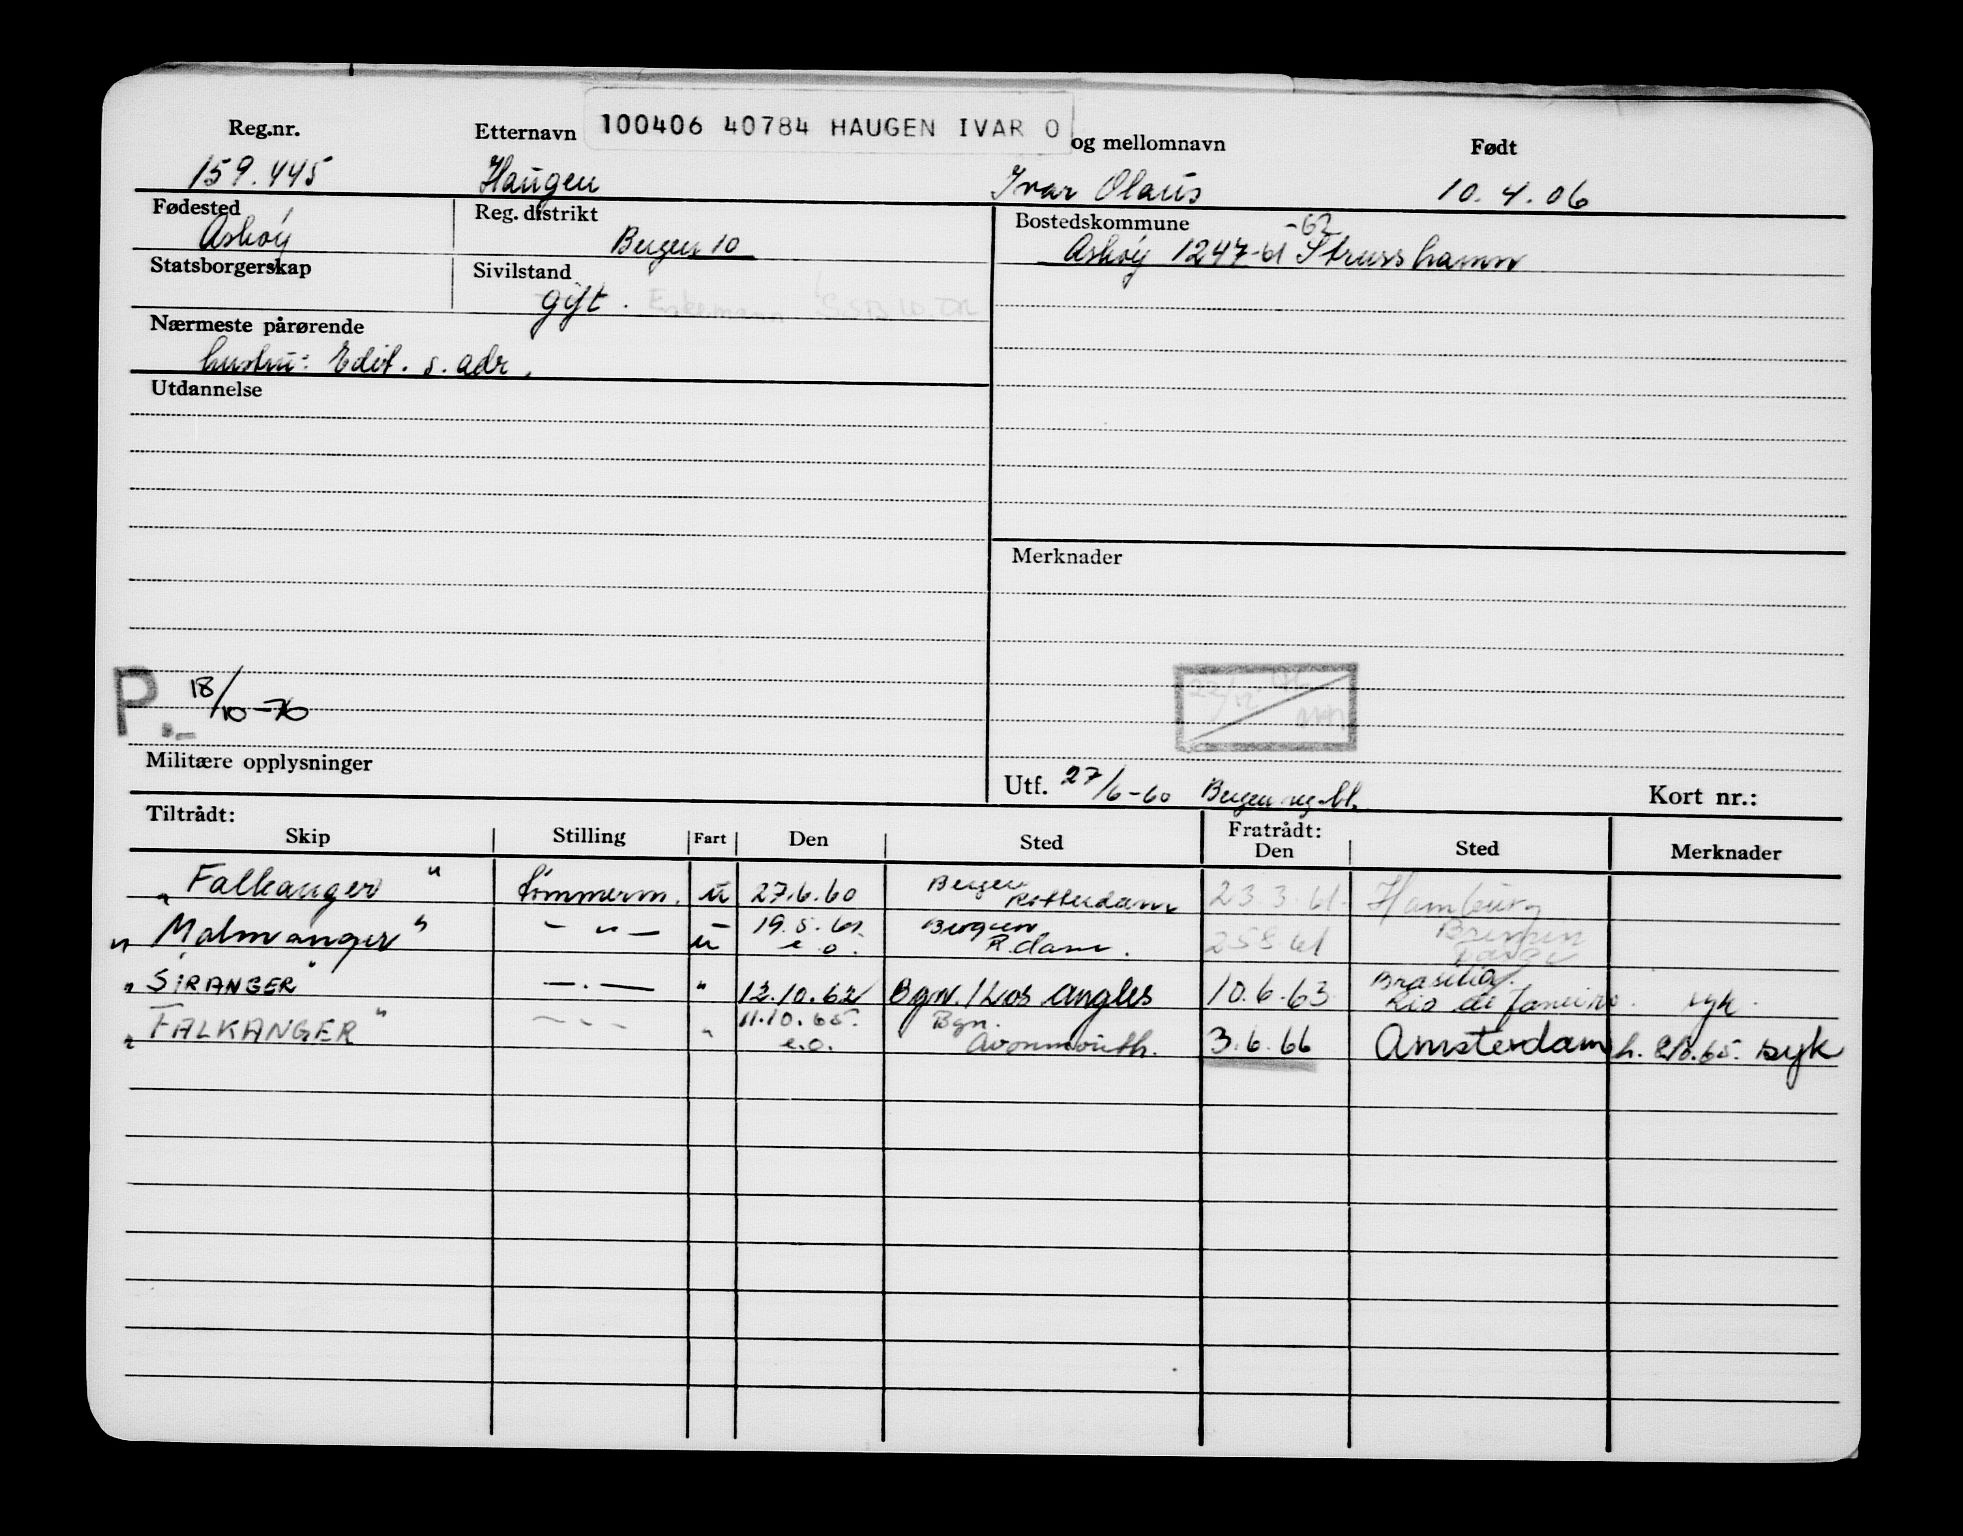 Reg.nr. Etternavn 100406 40784 HAUGEN IVAR O og mellomnavn Født
159.445 Haugen Ivar Olaus 10.4.06
Fødested Reg. distrikt Bostedskommune -62
Askøy Bergen 10 Askøy 1247-61 Strusshamn
Statsborgerskap Sivilstand
gift.
Nærmeste pårørende
hustru: Edit. s. adr.
Utdannelse
Merknader
P. 18/10-76
Militære opplysninger
Utf. 27/6-60 Bergen reg.bl. Kort nr.:
Tiltrådt: Fratrådt:
Skip Stilling Fart Den Sted Den Sted Merknader
"Falkanger" tømmerm. u 27.6.60 Bergen Rotterdam 23.3.61. Hamburg
"Malmanger" - " - u 19.5.61 e.o. Bergen R.dam. 25.8.61 Bremen
"SIRANGER" - . - " 12.10.62 Bgn./Los Angles 10.6.63 Brasilia. Rio de Janeiro. syk.
"FALKANGER" - - - " 11.10.65. e.o. Bgn. Avonmouth. 3.6.66 Amsterdam syk